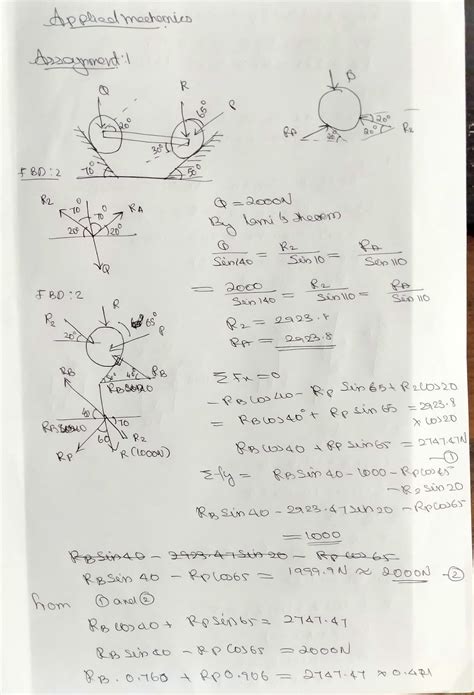 Applied mechanics
Assignment:1
Q R P
20° 65° 30° 70° 50°
P
RA R2 20° 20° 20°
FBD:2
R2 RA 70° 70° 20° 20° Q
Q = 2000N
By lami's theorem
Q/Sin140 = R2/Sin10 = RA/Sin110
= 2000/Sin140 = R2/Sin110 = RA/Sin110
R2 = 2923.8
RA = 2923.8
FBD:2
R P2 20° 65° P
RB RB
40 70
60 R2
RP R(1000N)
ΣFx=0
-RB cos40 - RP Sin65 + R2 cos20
= RB cos40° + RP sin65 = 2923.8 x cos20
RB cos40 + RP sin65 = 2747.47N -①
ΣFy = RB Sin40 - 1000 - RP cos65 - R2 sin20
RB Sin40 - 2923.47 sin20 - RP cos65
= 1000
RB Sin40 - 2923.47 sin20 - RP cos65
RB Sin40 - RP cos65 = 1999.9N ≈ 2000N -②
from ① and ②
RB cos40 + RP sin65 = 2747.47
RB Sin40 - RP cos65 = 2000N
RB . 0.760 + RP 0.906 = 2747.47 x 0.421